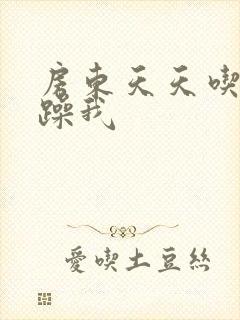 房東天天喫
躁我
愛喫土豆絲